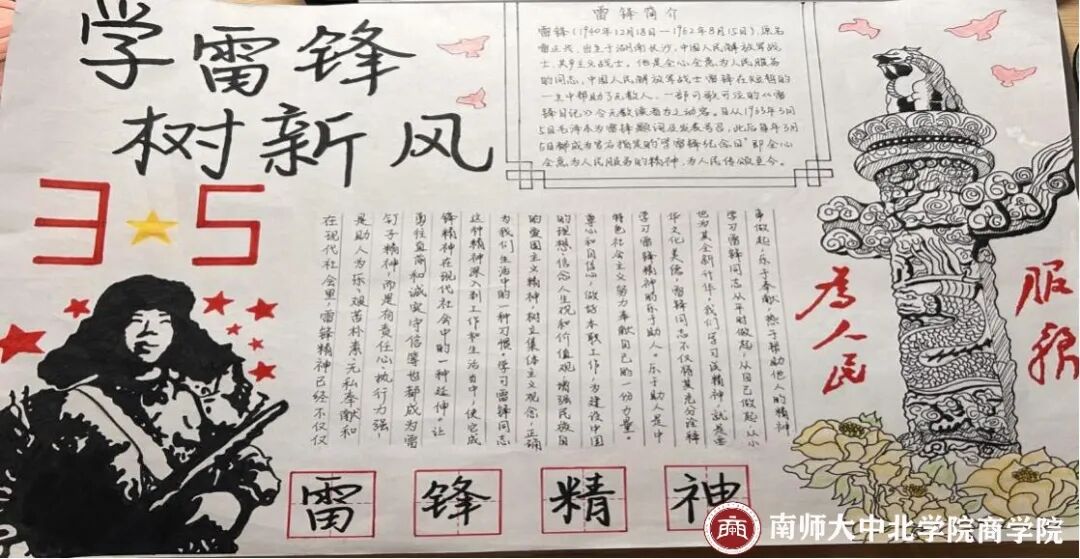 学雷锋
树新风
3 5
雷锋简介
雷锋（1940年12月18日—1962年8月15日），原名
雷正兴，出生于湖南长沙，中国人民解放军战
士、共产主义战士。他是全心全意为人民服务
的同志，中国人民解放军战士雷锋在短暂的
一生中帮助了无数人，一部可歌可泣的《雷
锋日记》令无数读者为之动容。自从1963年3月
5日毛泽东为雷锋题词及发表号召，此后每年3月
5日都成为官方指定的“学雷锋纪念日”即全心
全意为人民服务的精神，为人民传颂至今。
在现代社会里，雷锋精神已经不仅仅
是助人为乐、艰苦朴素、无私奉献和
钉子精神，而是有责任心、执行力强、
勇往直前和诚实守信等也都成为雷
锋精神在现代社会中的一种延伸，让
这种精神深入到工作和生活当中，使它成
为我们生活中的一种习惯。学习雷锋同志
的爱国主义精神树立集体主义观念，正确
的理想、信念、人生观和价值观，增强民族自
尊心和自信心，做好本职工作，为建设中国
特色社会主义努力奉献自己的一份力量。
学习雷锋精神的乐于助人。乐于助人是中
华文化美德，雷锋同志不仅将其充分诠释
也为其全新升华。我们学习该精神，就是要
学习雷锋同志从平时做起，从自己做起，从小
事做起，乐于奉献，热于帮助他人的精神
为人民
服务
雷锋精神
南师大中北学院商学院